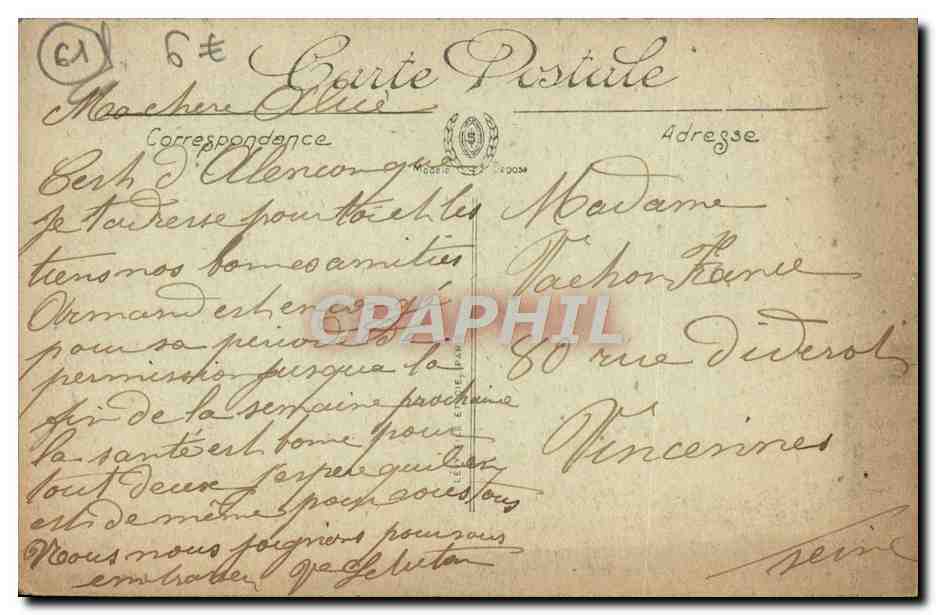 61 6€
Carte Postale
Ma chere Alice
Correspondance
Adresse
Modèle Déposé
C'est d'Alencon que
je t'adresse pour toi et les
tiens nos bonnes amitiés
Armand est en congé
pour sa période de
permission jusqua la
fin de la semaine prochaine
la santé est bonne pour
tout deux j'espère quil en
est de même pour vous tous
Nous nous joignons pour vous
embrasser Ve
Madame
Vachon
80 rue Diderot
Vincennes
Seine
CPAPHIL